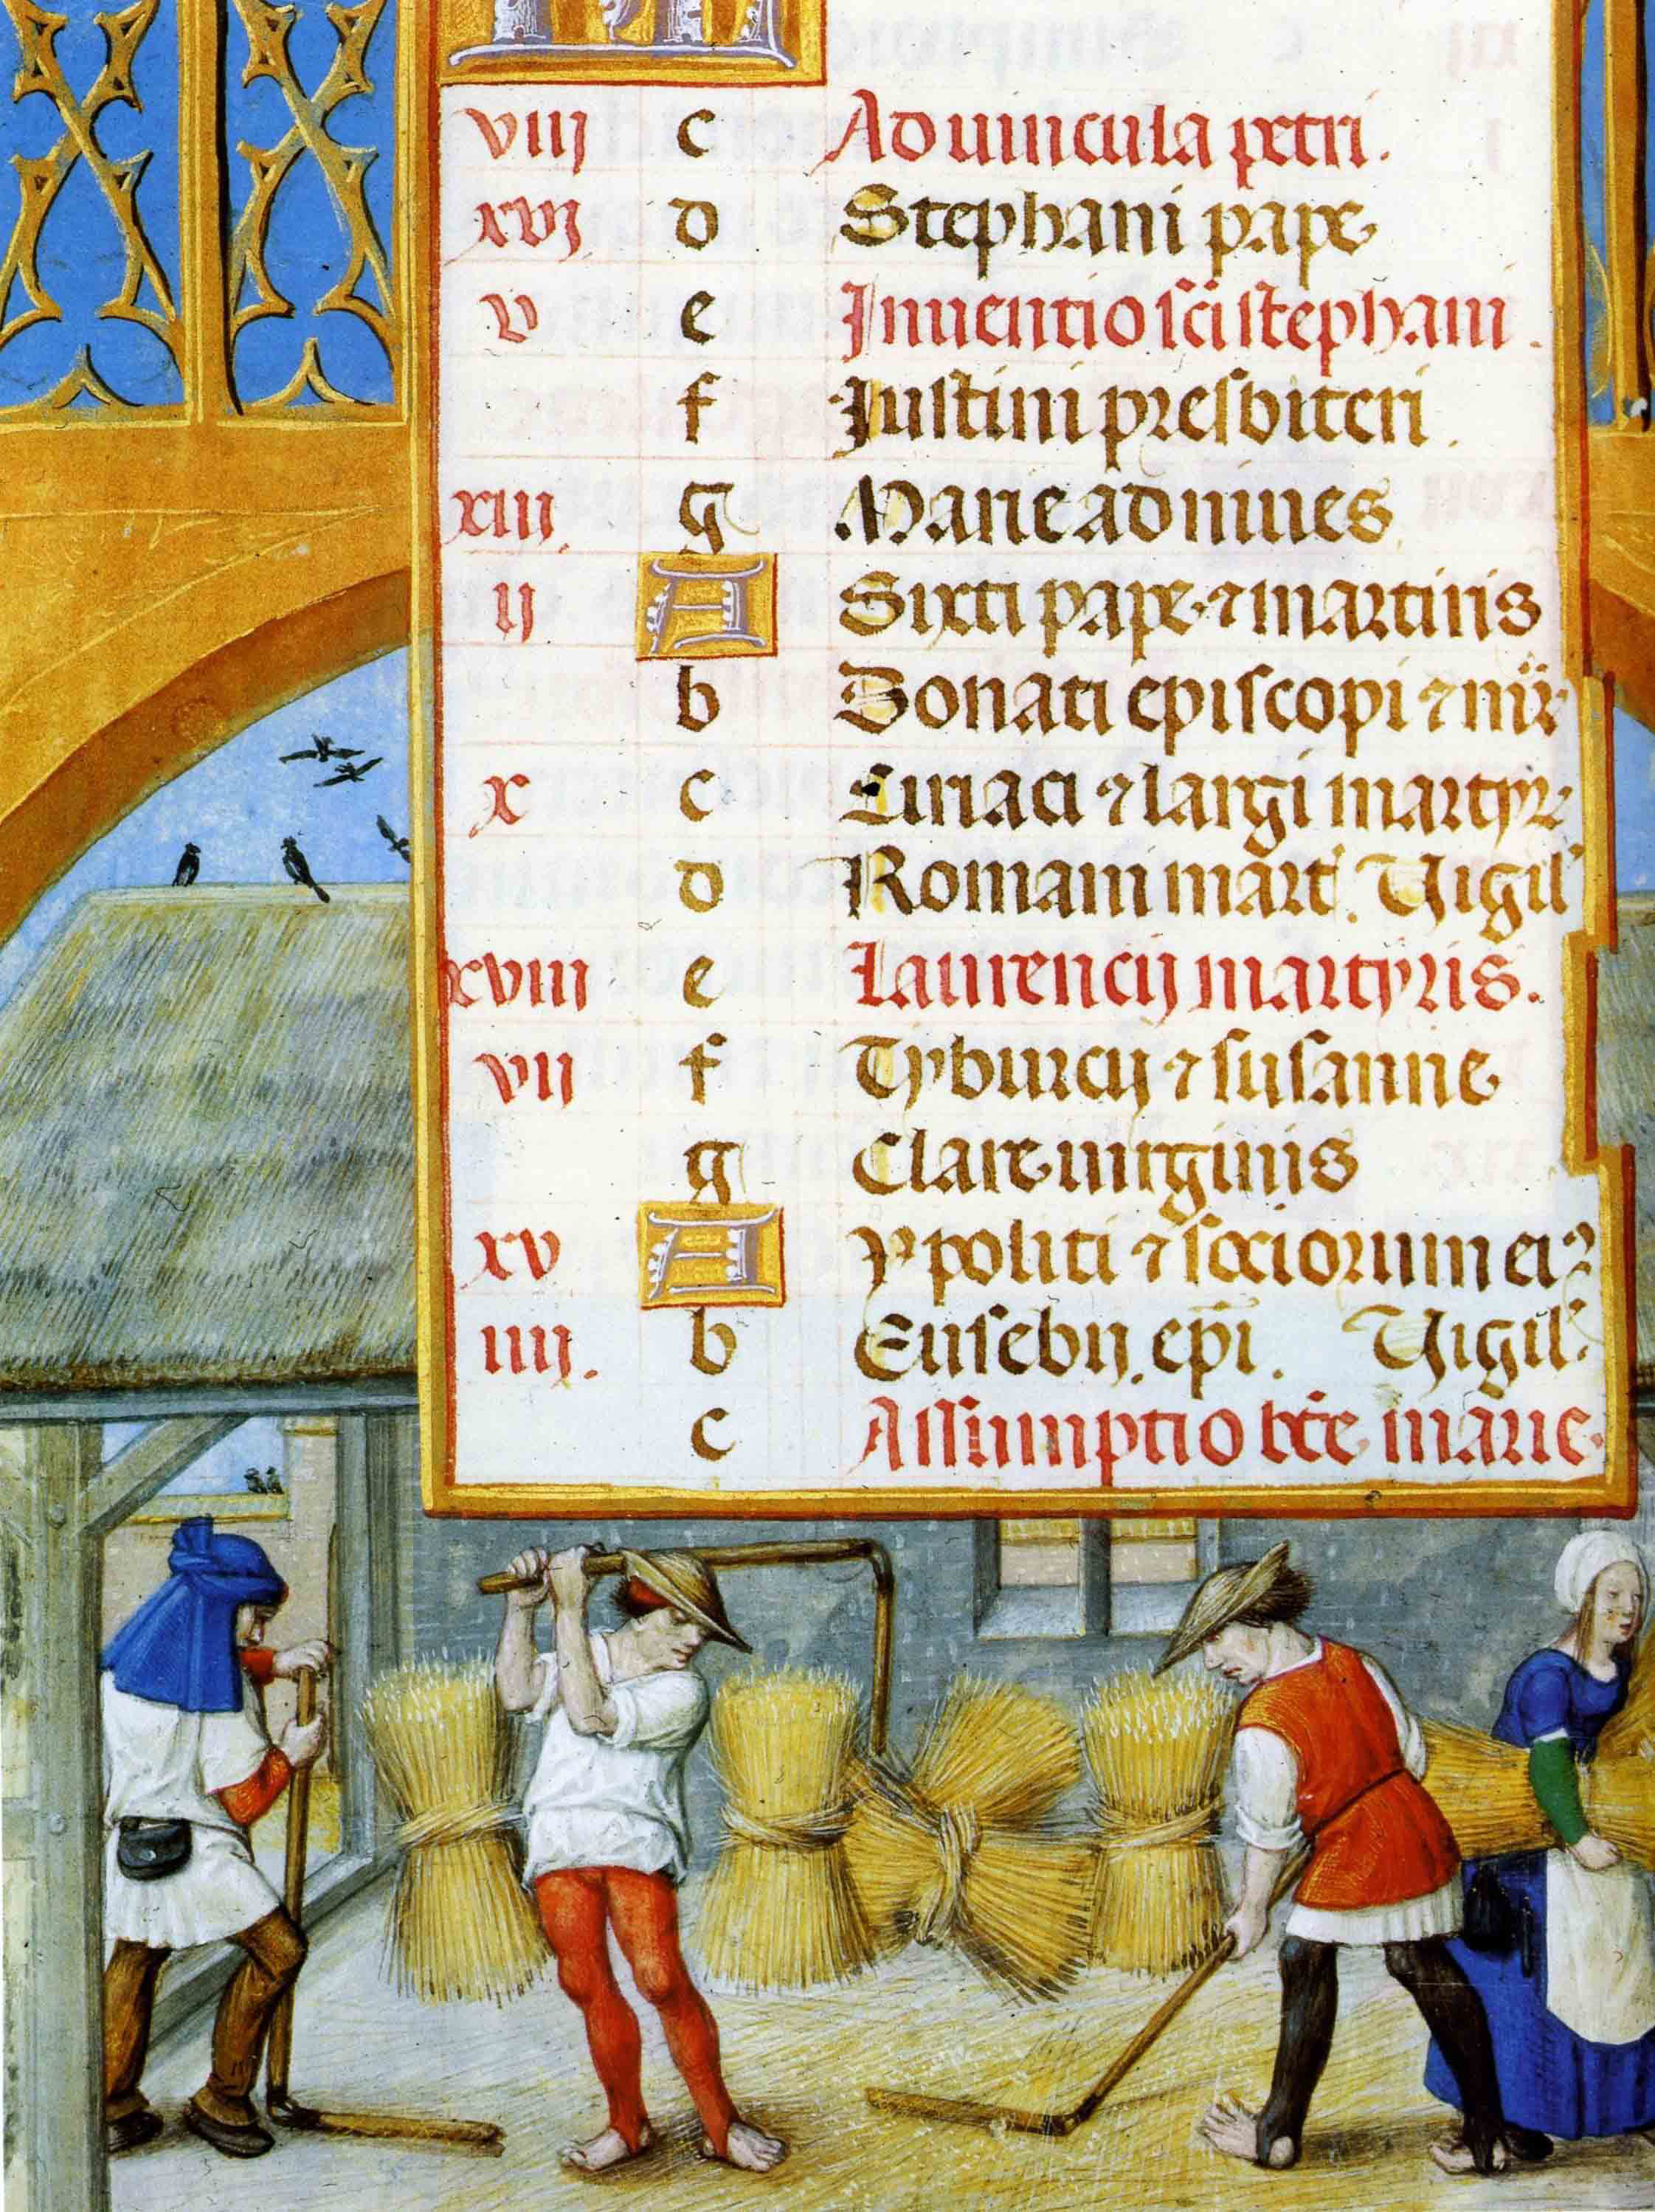 viij c Ad vincula petri.
xvj d Stephani pape
v e Inuentio sci stephani.
f Justini presbiteri.
xiij g Marie ad niues
ij A Sixti pape ⁊ martiris
b Donati episcopi ⁊ mr̃
x c Ciriaci ⁊ largi martyr
d Romani mart. Vigil'
xviij e Laurencij martyris.
vij f Tyburcij ⁊ susanne
g Clare uirginis
xv A Ypoliti ⁊ sociorum ei⁹
iiij. b Eusebij. ep̃i. Vigil'.
c Assumptio bt̃e marie.